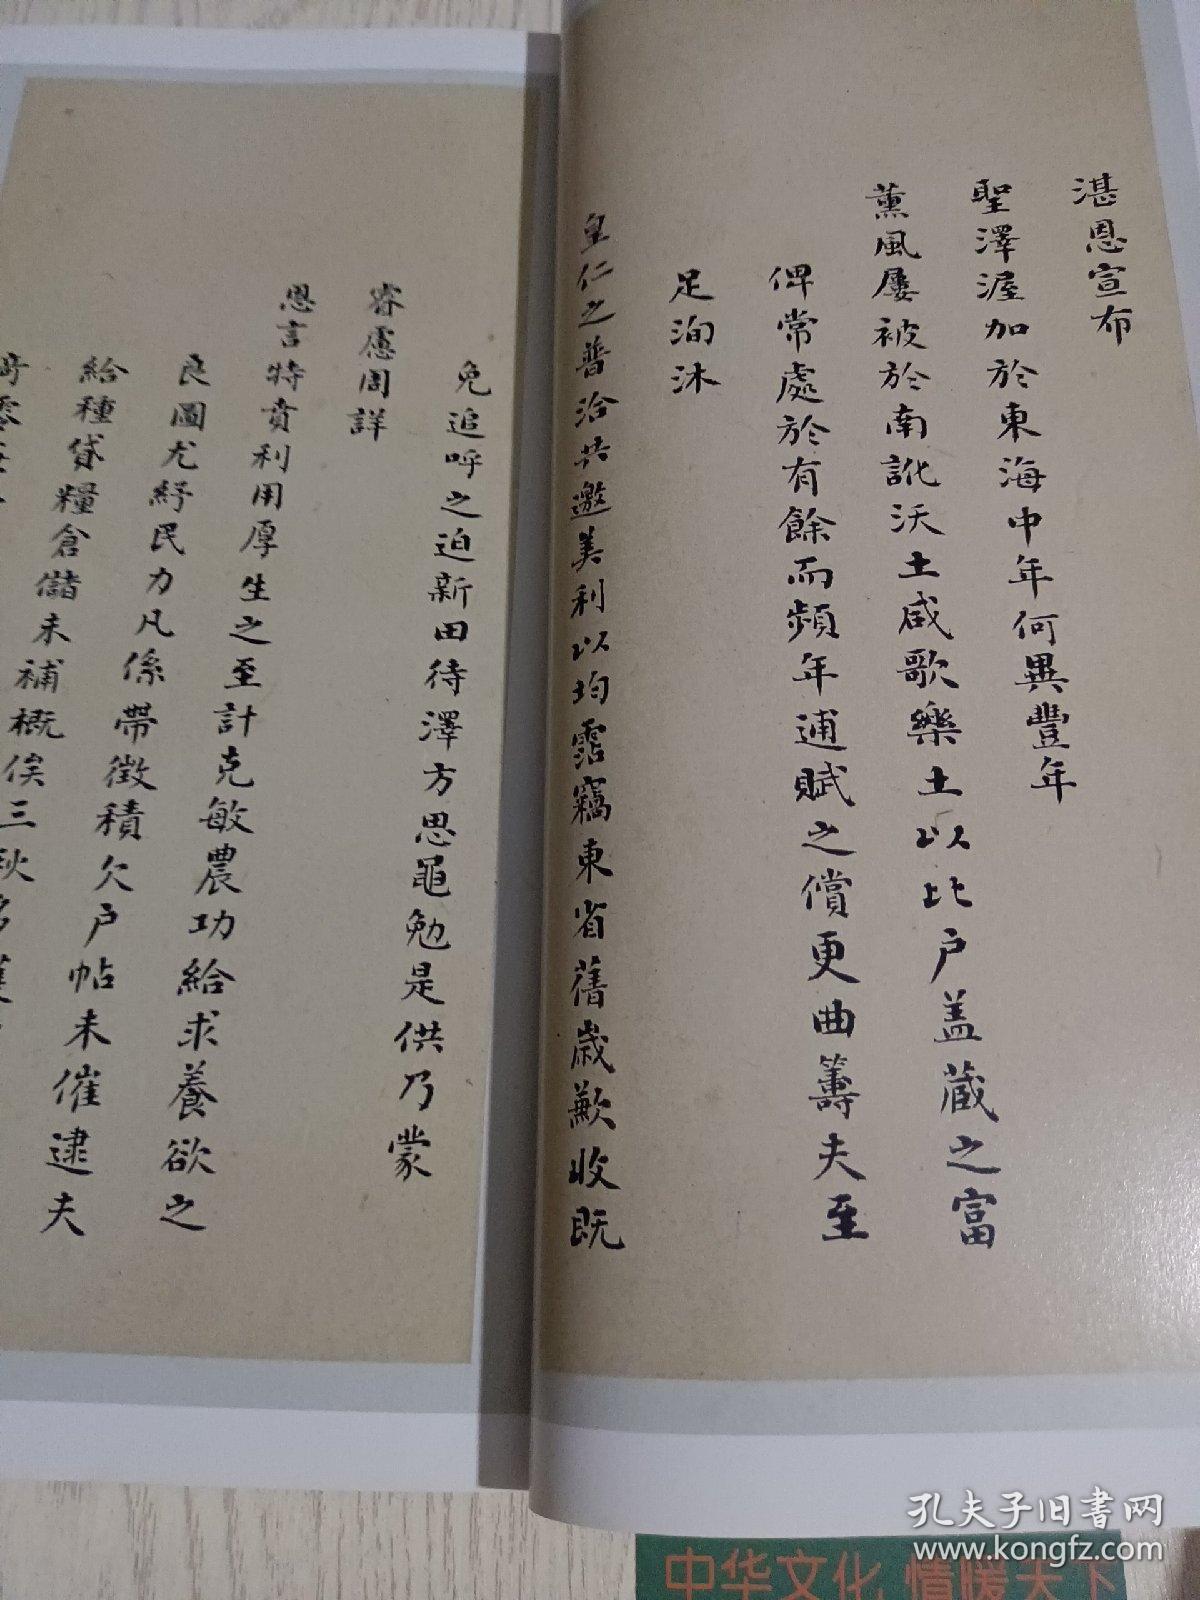 湛恩宣布
聖澤渥加於東海中年何異豐年
薰風屢被於南訛沃土咸歌樂土以比户盖蔵之富
俾常處於有餘而頻年逋賦之償更曲籌夫至
足洵沐
皇仁之普洽共邀美利以均霑竊東省舊歲歉收既
免追呼之迫新田待澤方思黽勉是供乃蒙
睿慮周詳
恩言特賁利用厚生之至計克敏農功給求養欲之
良圖尤紓民力凡係帶徵積欠户帖未催逮夫
給種貸糧倉儲未補概俟三秋
孔夫子旧书网
www.kongfz.com
中华文化 情暖天下